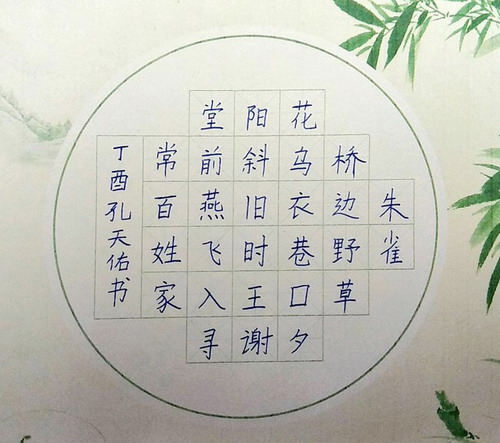 朱雀
桥边野草
花乌衣巷口夕
阳斜旧时王谢
堂前燕飞入寻
常百姓家
丁酉孔天佑书